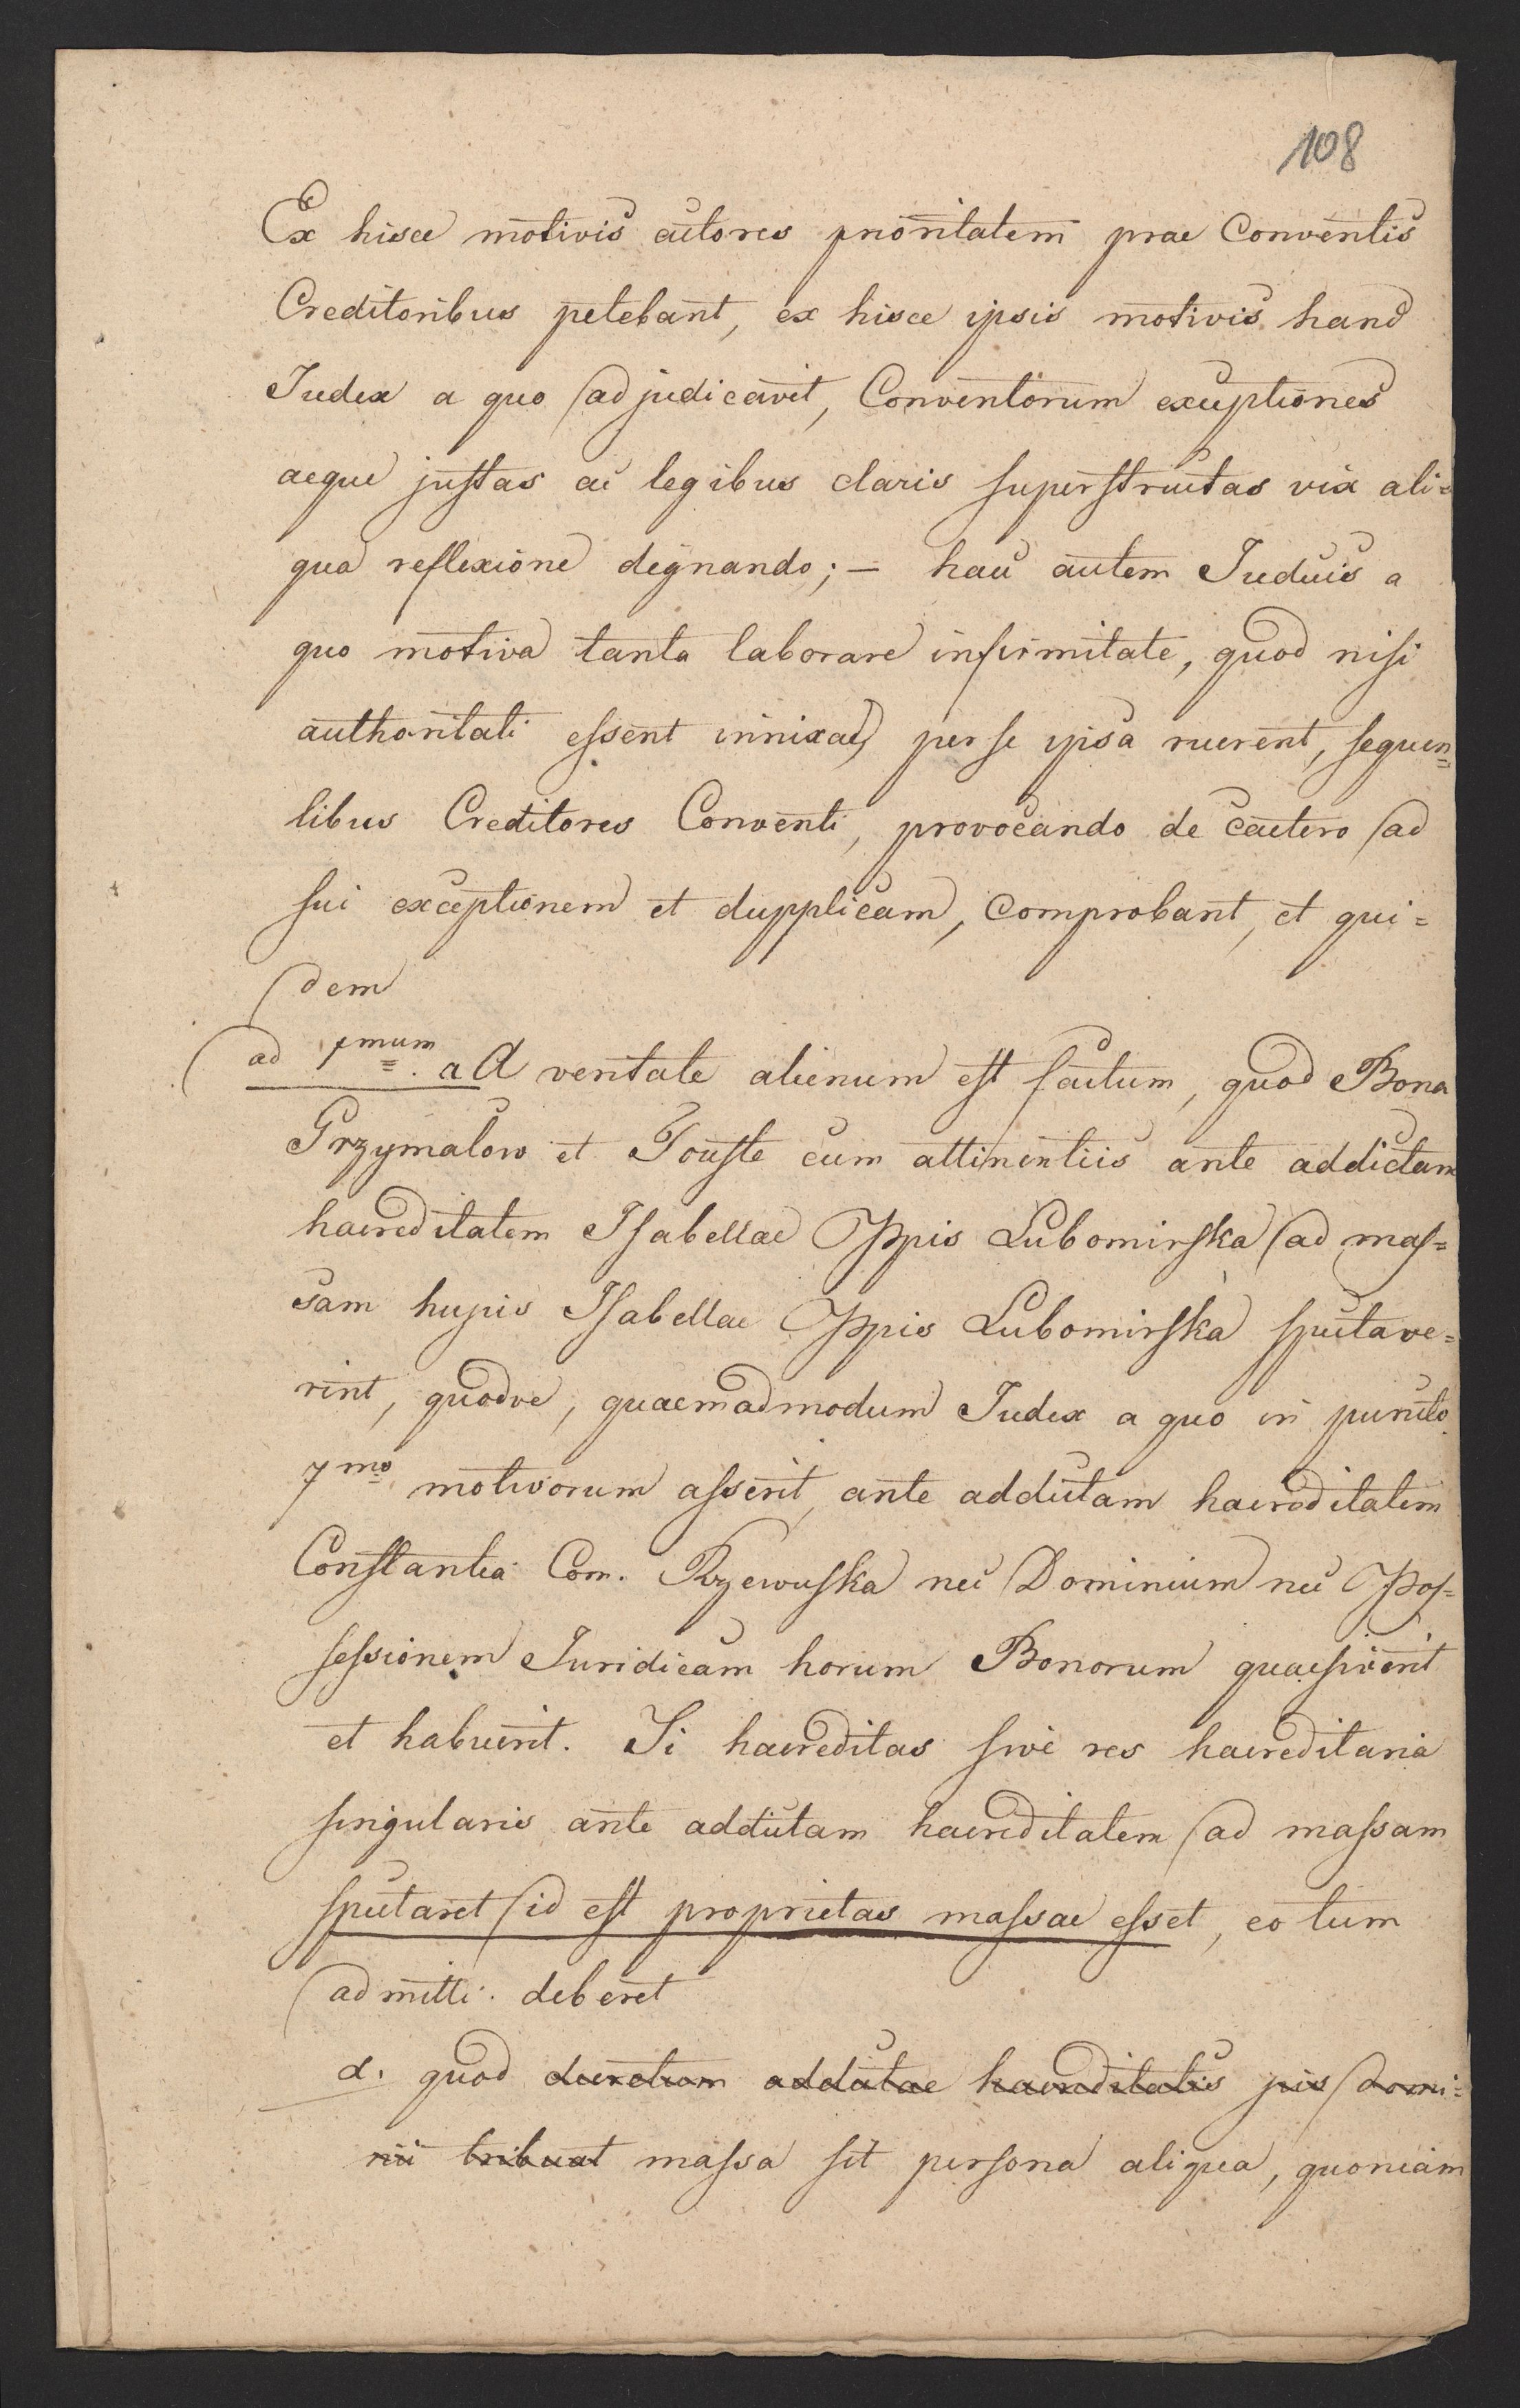 108
Ex hisce motivis actores prioritatem prae Conventis
Creditoribus petebant, ex hisce ipsis motivis hanc
Iudex a quo adjudicavit, Conventorum exceptiones
aeque justas ac legibus claris superstructas vix ali=
qua reflexione dignando; — haec autem Iudicis a
quo motiva tanta laborare infirmitate, quod nisi
authoritati essent innixae, per se ipsa ruerent, sequen=
tibus Creditores Conventi, provocando de caetero ad
sui exceptionem et dupplicam, comprobant, et qui=
dem
ad 1mum. a A veritate alienum est factum, quod Bona
Grzymalow et Touste cum attinentiis ante addictam
haereditatem Isabellae Ppis Lubomirska ad mas=
sam hujus Isabellae Ppis Lubomirska spectave=
rint, quodve, quaemadmodum Iudex a quo in puncto
7mo motivorum asserit, ante addictam haereditatem
Constantia Com. Rzewuska nec Dominium nec Pos=
sessionem Iuridicam horum Bonorum quaesiverit
et habuerit. Si haereditas sive res haereditaria
singularis ante addictam haereditatem ad massam
spectaret id est proprietas massae esset, eo tum
admitti deberet
α. quod decretum addictae haereditatis jus domi=
nii tribuat massa sit persona aliqua, quoniam